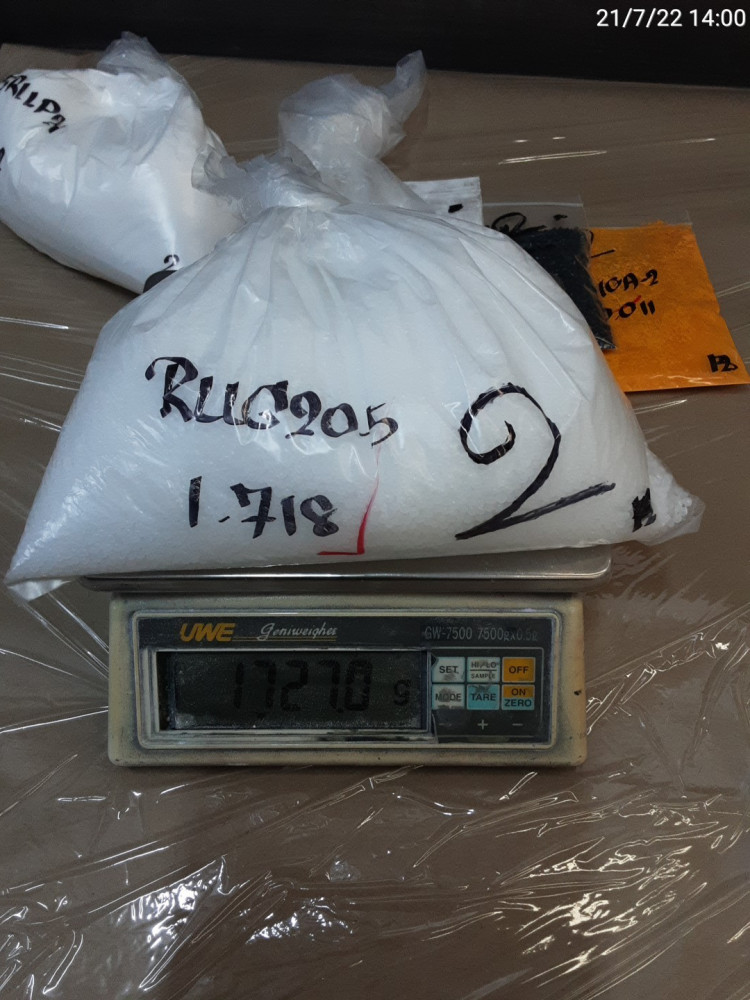 21/7/22 14:00
2
RUC205
1.718
2
10A-2
0.011
P2
UWE Geniweigher GW-7500 7500gx0.5g
1,727.0 g
SET HI/LO SAMPLE OFF
MODE TARE ON ZERO
+ −